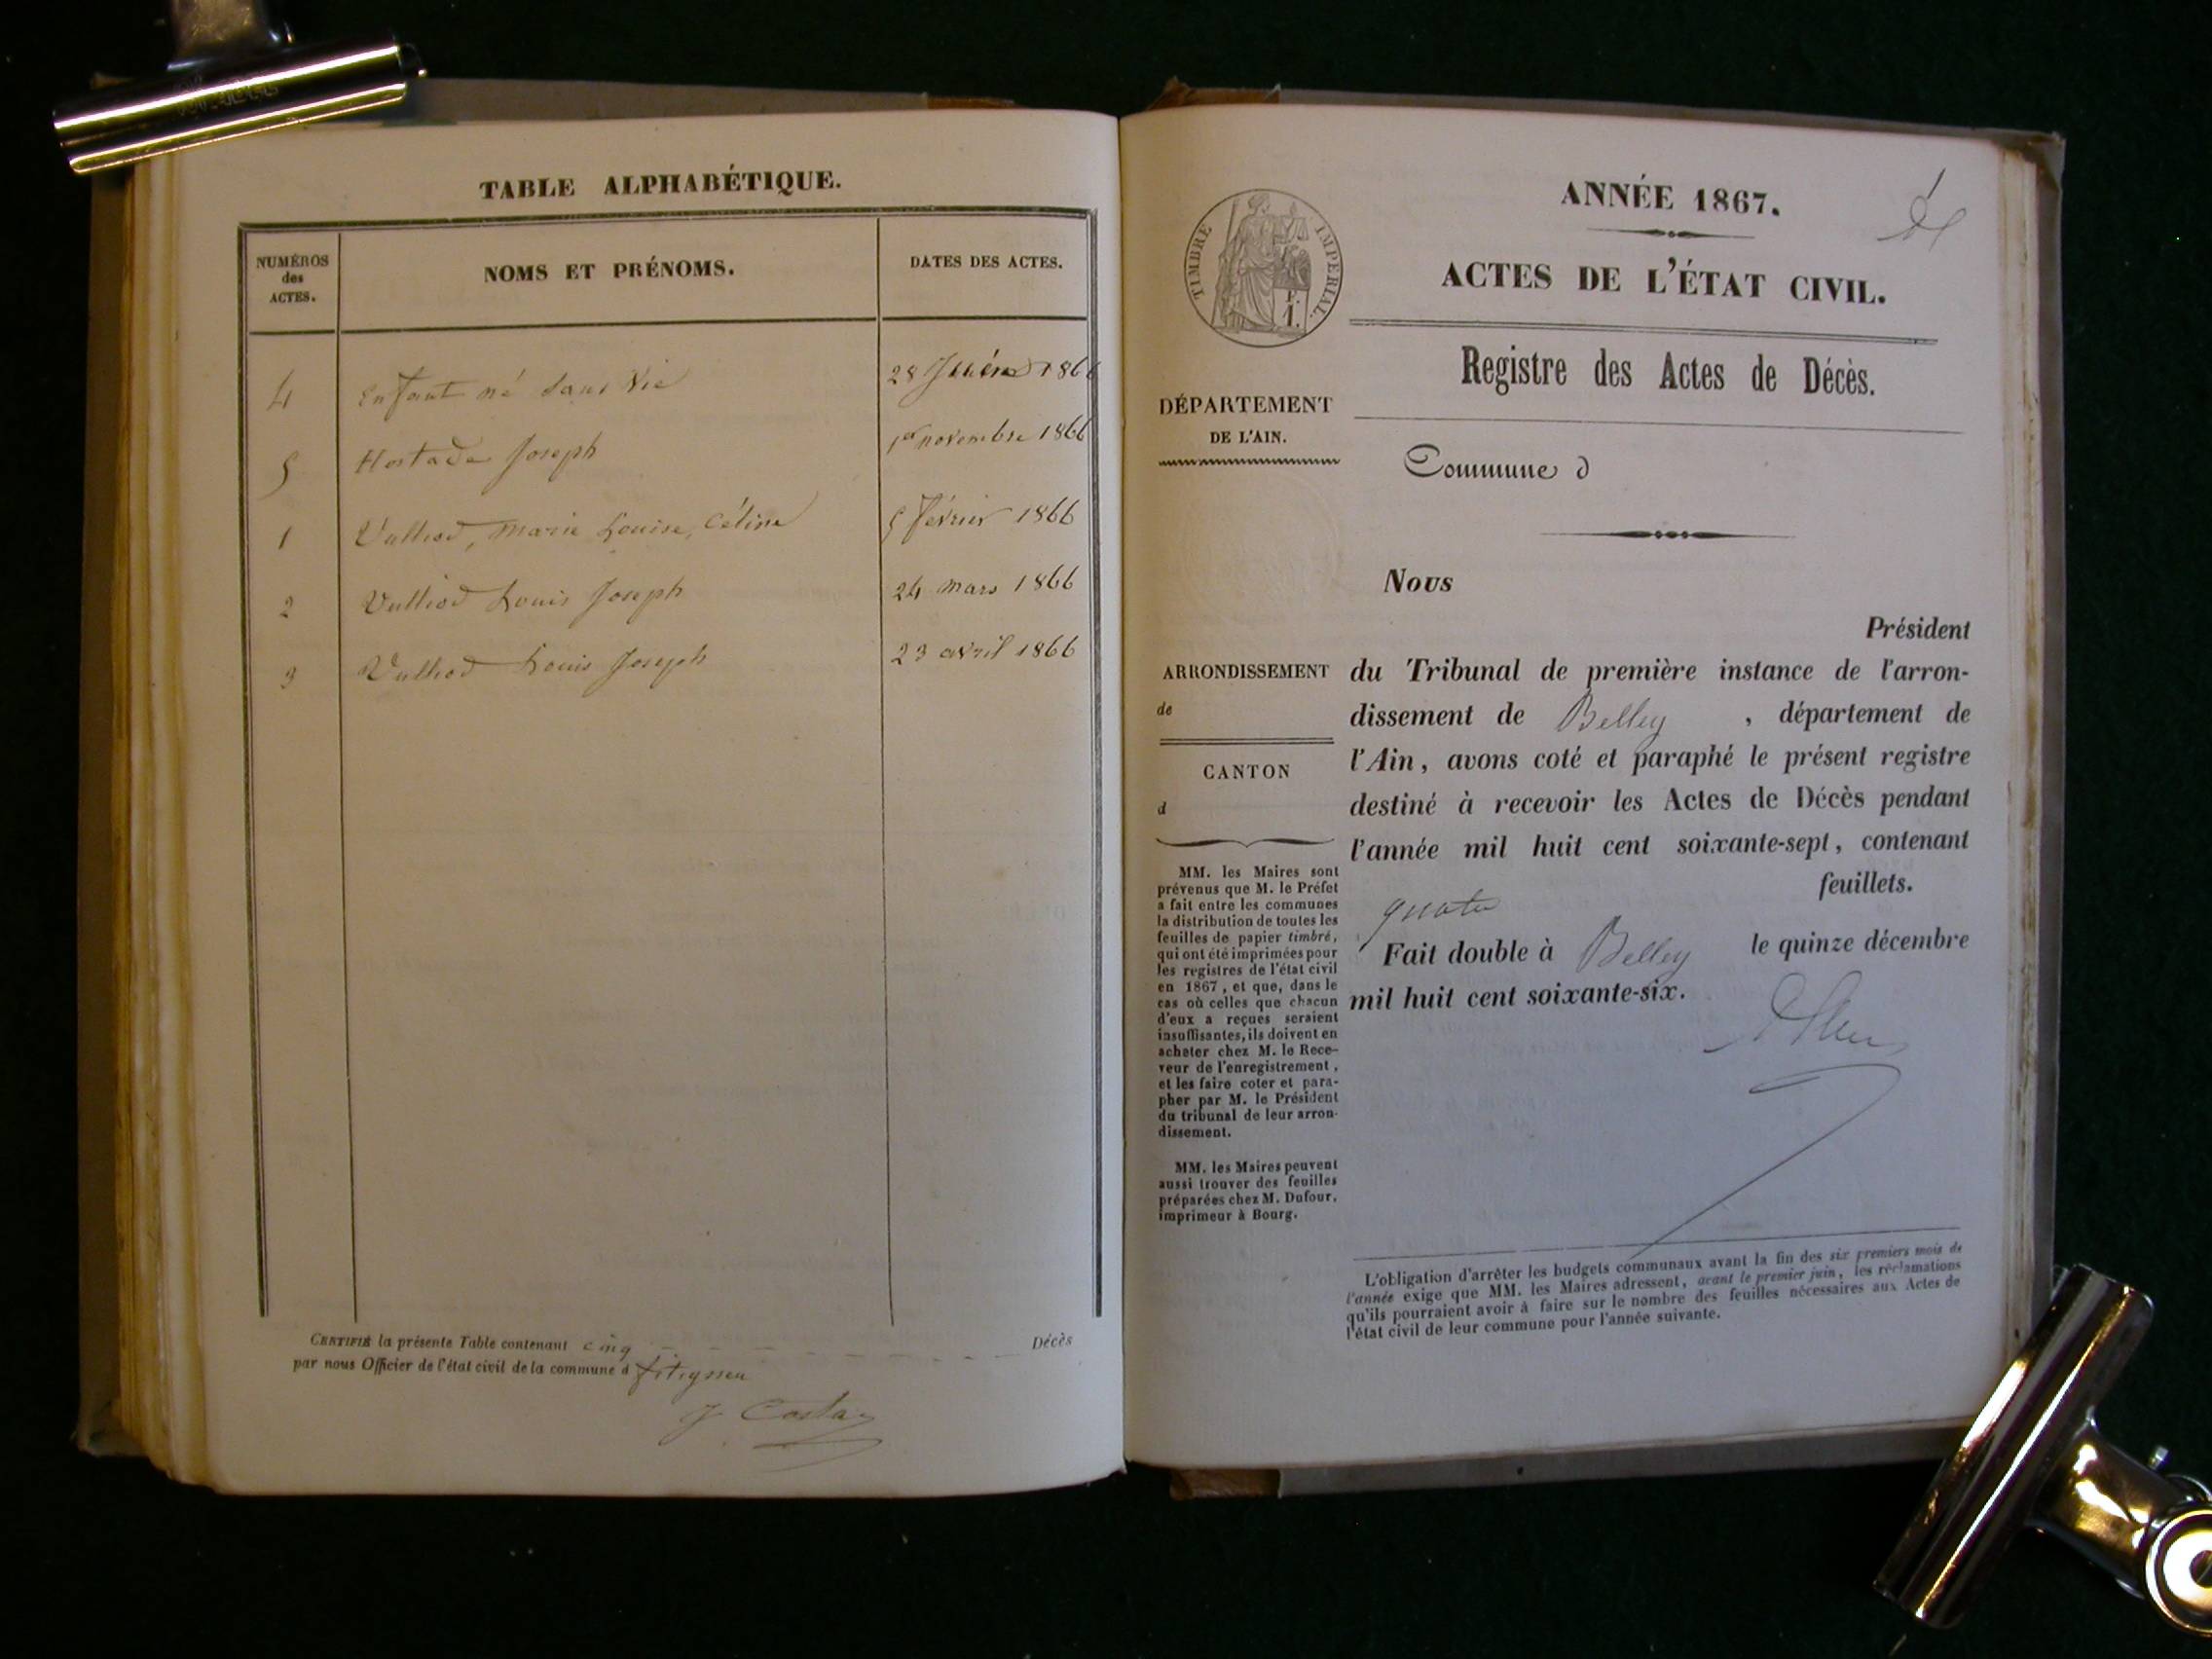 TABLE ALPHABÉTIQUE.
NUMÉROS des ACTES.
NOMS ET PRÉNOMS.
DATES DES ACTES.
4 Enfant né sans Vie 28 1866
5 Hostade Joseph 1er novembre 1866
1 Vulliod, Marie Louise, Céline 5 février 1866
2 Vulliod Louis Joseph 24 mars 1866
3 Vulliod Louis Joseph 23 avril 1866
CERTIFIÉ la présente Table contenant cinq Décès
par nous Officier de l'état civil de la commune d fitignieu
J Costaz
TIMBRE IMPERIAL.
F.
1.
ANNÉE 1867.
ACTES DE L'ÉTAT CIVIL.
Registre des Actes de Décès.
DÉPARTEMENT
DE L'AIN.
Commune d
ARRONDISSEMENT
de
CANTON
d
MM. les Maires sont
prévenus que M. le Préfet
a fait entre les communes
la distribution de toutes les
feuilles de papier timbré,
qui ont été imprimées pour
les registres de l'état civil
en 1867, et que, dans le
cas où celles que chacun
d'eux a reçues seraient
insuffisantes, ils doivent en
acheter chez M. le Rece-
veur de l'enregistrement,
et les faire coter et para-
pher par M. le Président
du tribunal de leur arron-
dissement.
MM. les Maires peuvent
aussi trouver des feuilles
préparées chez M. Dufour,
imprimeur à Bourg.
Nous
Président
du Tribunal de première instance de l'arron-
dissement de Belley, département de
l'Ain, avons coté et paraphé le présent registre
destiné à recevoir les Actes de Décès pendant
l'année mil huit cent soixante-sept, contenant
quatre feuillets.
Fait double à Belley le quinze décembre
mil huit cent soixante-six.
L'obligation d'arrêter les budgets communaux avant la fin des six premiers mois de
l'année exige que MM. les Maires adressent, avant le premier juin, les réclamations
qu'ils pourraient avoir à faire sur le nombre des feuilles nécessaires aux Actes de
l'état civil de leur commune pour l'année suivante.